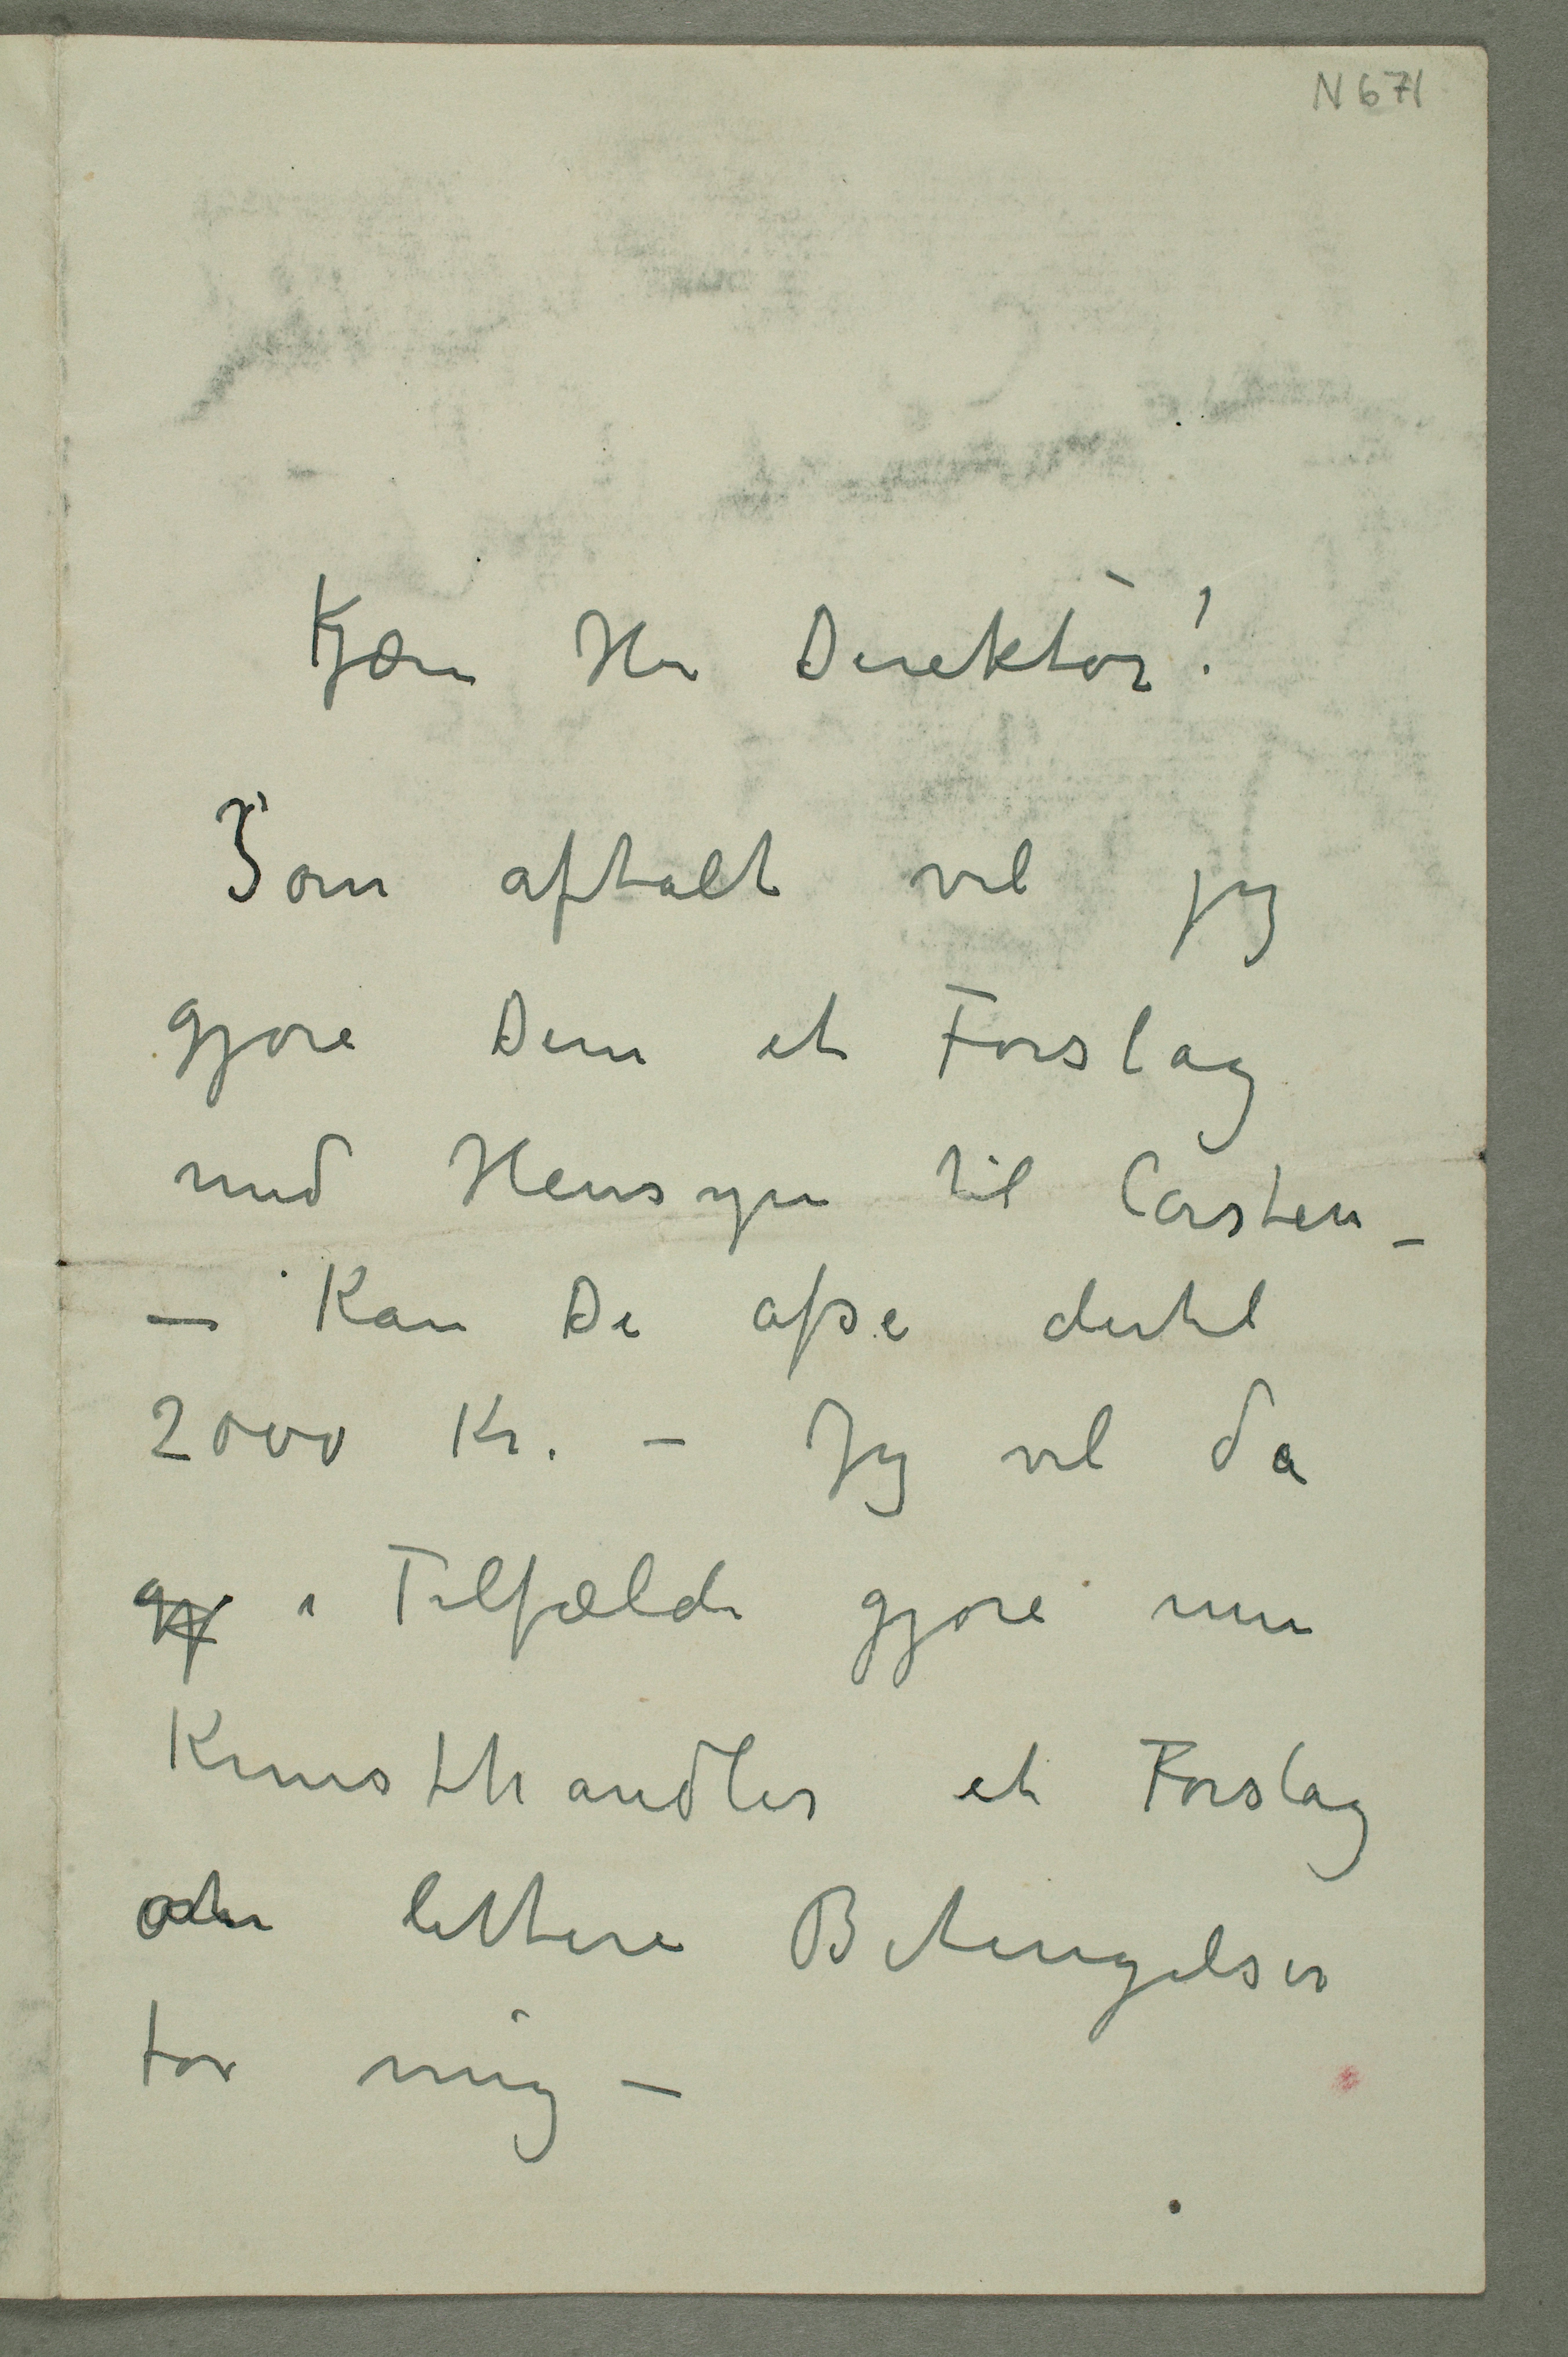 N 671
Kjære Her Direktör!
Som aftalt vil jeg
gjøre Dem et Forslag
med Hensyn til Corsten –
– Kan De afse dertil
2000 Kr. – Jeg vil da
gj i Tilfælde gjøre min
Kunsthandler et Forslag
om lettere Betingelser
for mig –